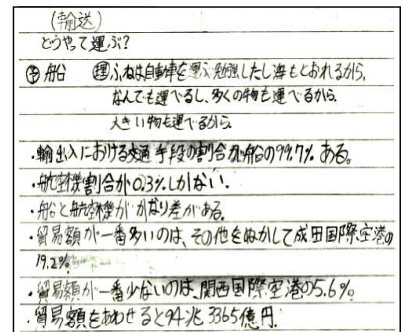 (輸送)
どうやって運ぶ?
予 船 理 ふねは自動車を運ぶ勉強したし海もとおれるから、
なんでも運べるし、多くの物も運べるから
大きい物も運べるから
・輸出入における交通手段の割合が船の99.7%ある。
・航空機割合が0.3%しかない。
・船と航空機がかなり差がある。
・貿易額が一番多いのは、その他をぬかして成田国際空港の
19.2%
・貿易額が一番少ないのは、関西国際空港の5.6%。
・貿易額をあわせると94兆3365億円。